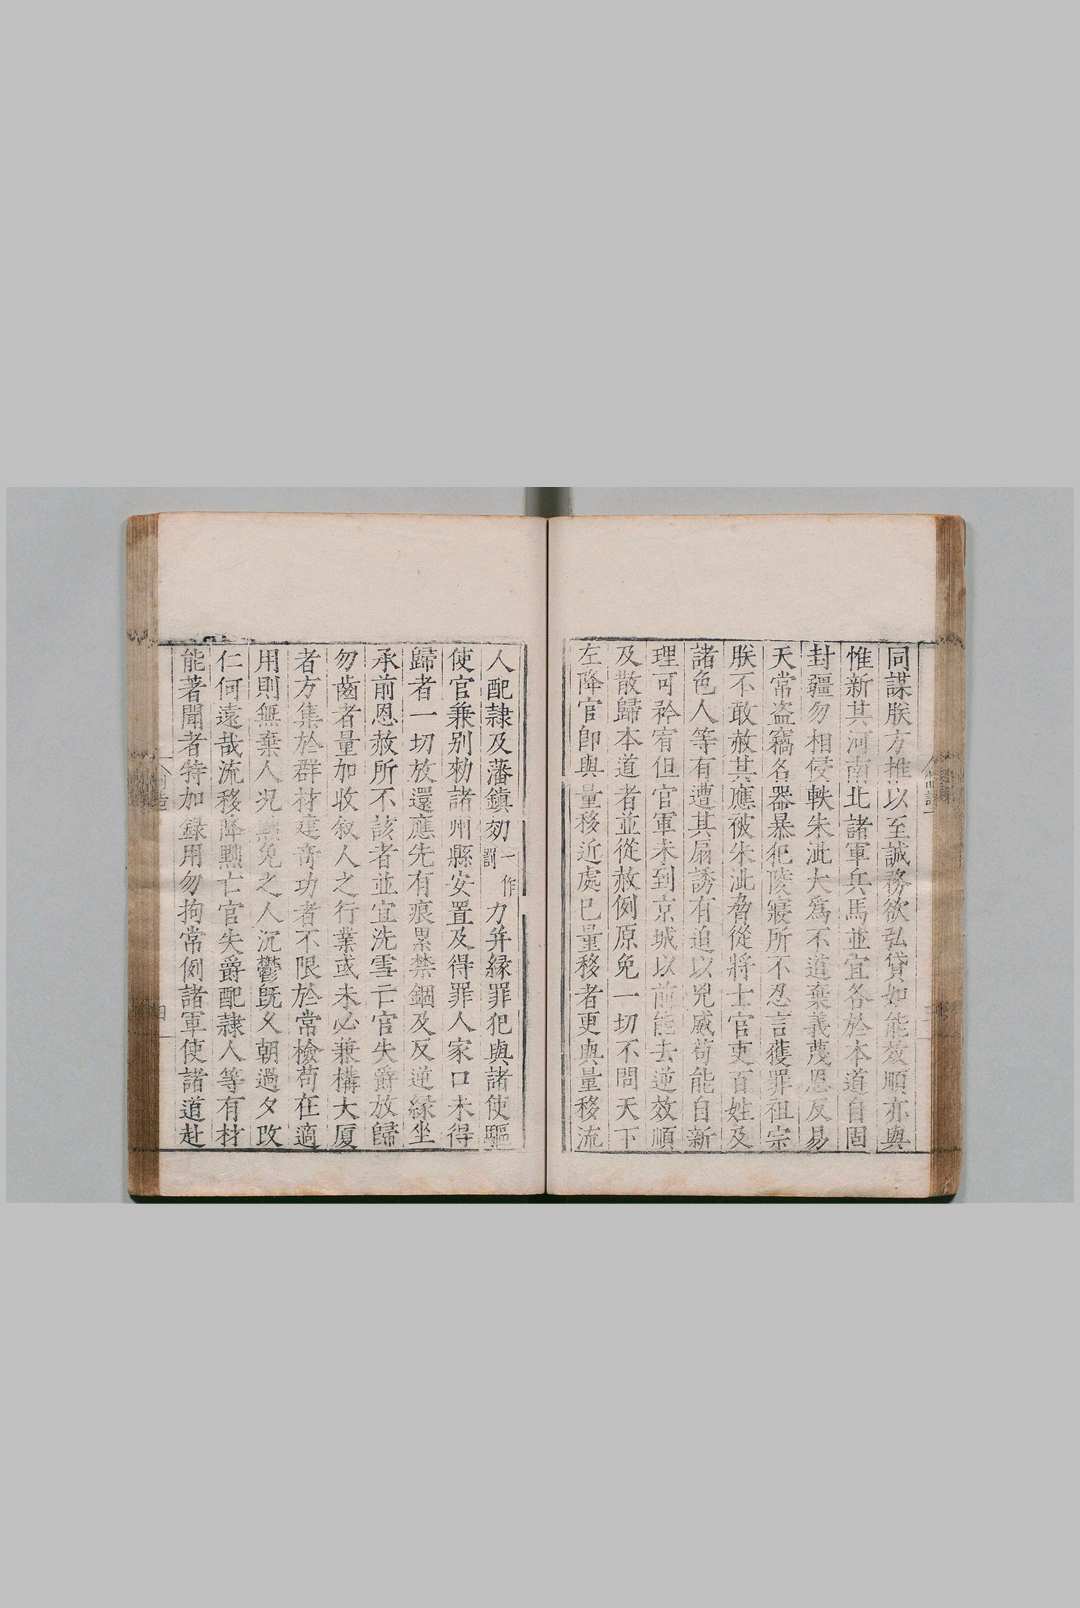 同謀朕方推以至誠務欲弘貸如能效順亦與
惟新其河南北諸軍兵馬並宜各於本道自固
封疆勿相侵軼朱泚大為不道棄義蔑恩反易
天常盗竊名器暴犯陵寢所不忍言獲罪祖宗
朕不敢赦其應被朱泚脅從將士官吏百姓及
諸色人等有遭其扇誘有迫以兇威苟能自新
理可矜宥但官軍未到京城以前能去逆效順
及散歸本道者並從赦例原免一切不問天下
左降官卽與量移近處已量移者更與量移流
人配隷及藩鎮効一作罰力并縁罪犯與諸使驅
使官兼别勑諸州縣安置及得罪人家口未得
歸者一切放還應先有痕累禁錮及反逆縁坐
承前恩赦所不該者並宜洗雪亡官失爵放歸
勿齒者量加收叙人之行業或未必兼構大厦
者方集於群材建竒功者不限於常檢苟在適
用則無棄人况黜免之人沉鬱旣乆朝過夕改
仁何遠哉流移降黜亡官失爵配隷人等有材
能著聞者特加録用勿拘常例諸軍使諸道赴